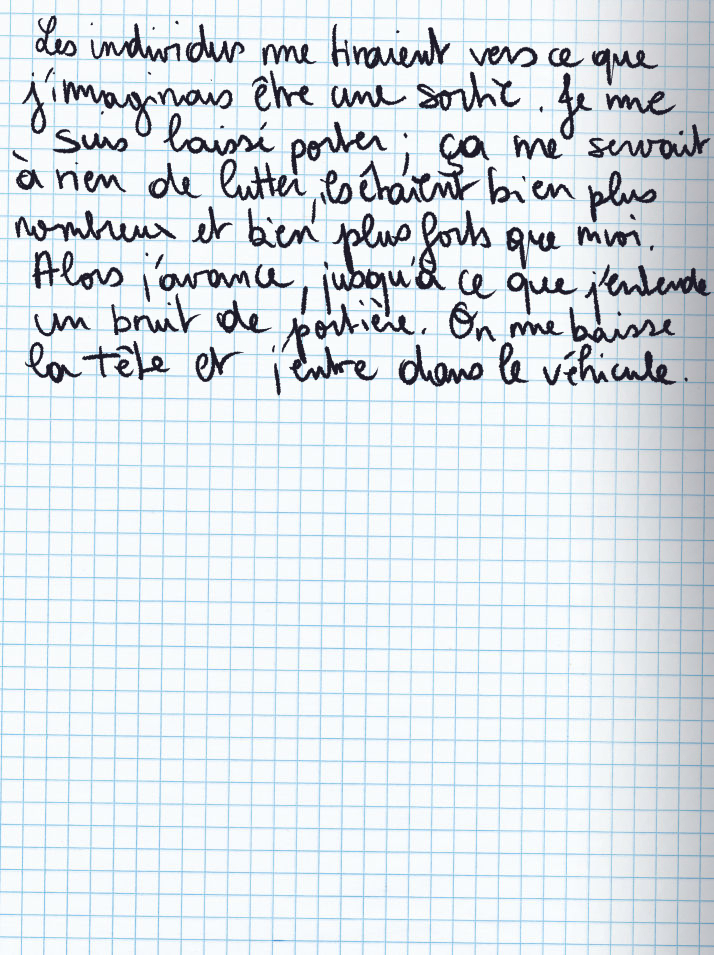 Les individus me tiraient vers ce que
j'imaginais être une sortie. Je me
suis laissé porter ; ça me servait
à rien de lutter, ils étaient bien plus
nombreux et bien plus forts que moi.
Alors j'avance, jusqu'à ce que j'entende
un bruit de portière. On me baisse
la tête et j'entre dans le véhicule.